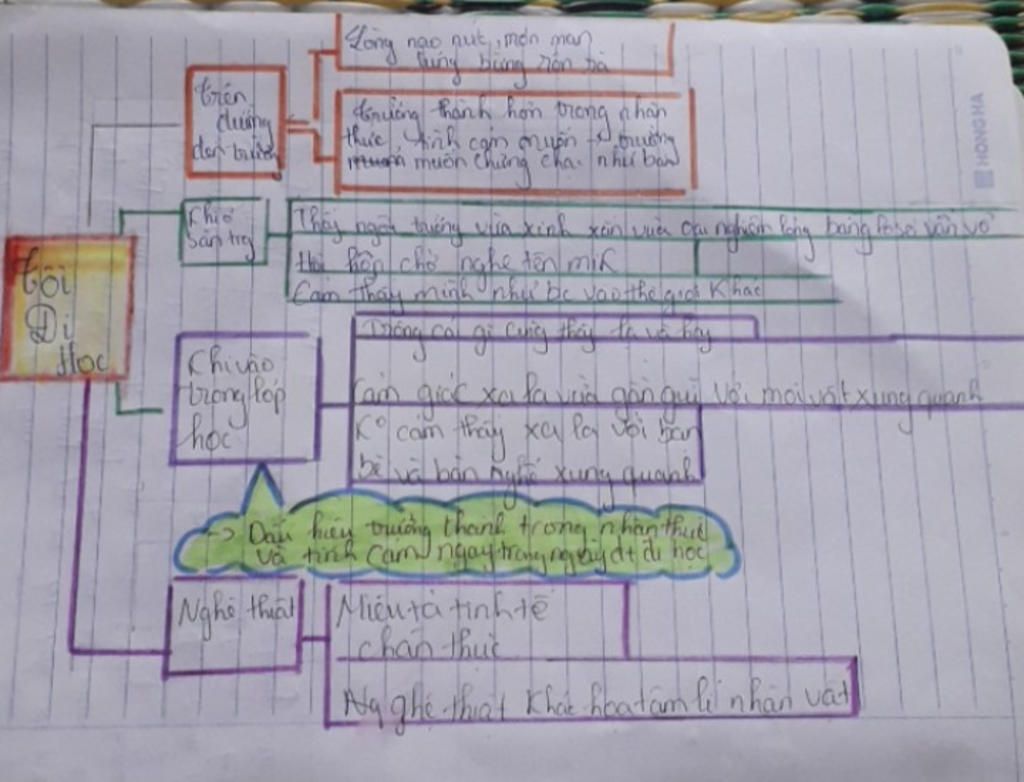 Lòng nao nức, mơn man
tưng bừng rộn rã
trên
đường
đến trường
trưởng thành hơn trong nhận
thức tình cảm muốn trưởng
muốn chứng như bạn
Khi ở
sân trg
Thấy ngôi trường vừa xinh xắn vừa oai nghiêm lòng vẩn vơ
Hồi hộp chờ nghe tên mìh
Cảm thấy mình như bc vào thế giới khác
Tôi
Đi
Học
Khi vào
trong lớp
học
Trông cái gì cũng thấy lạ và hay
Cảm giác xa lạ vừa gần gũi với mọi vật xung quanh
Ko cảm thấy xa lạ với bàn
bè và bàn nghế xung quanh
-> Dấu hiệu trưởng thành trong nhận thức
và tình cảm ngay trong ngày đt đi học
Nghệ thuật
Miêu tả tinh tế
chân thực
Ng ghệ thuật khắc hoạ tâm lí nhân vật
HONG HA